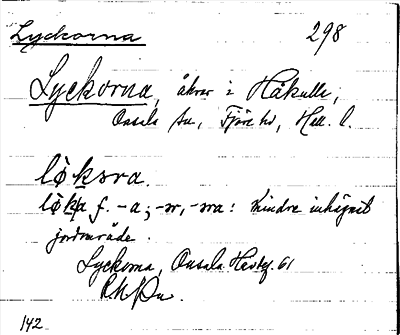 Lyckorna
298
Lyckorna, åkrar i Håkulla,
Onsala sn, Fjäre hd, Hall. l.
lökora.
löka f. -a; -or, -ora: mindre inhägnat
jordområde.
Lyckorna, Onsala Hestög. 61
142